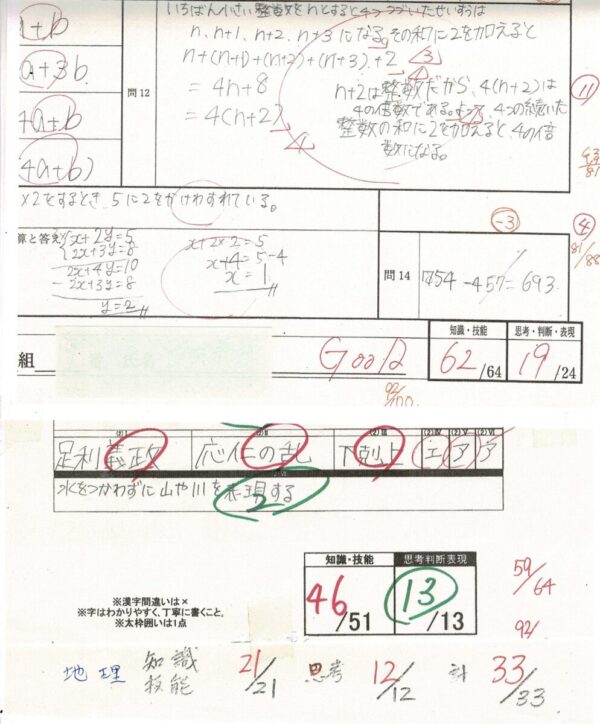 いちばん小さい整数をnとすると4つつづいたせいすうは
n、n+1、n+2、n+3になる。その和に2を加えると
n+(n+1)+(n+2)+(n+3)+2
= 4n+8
= 4(n+2)
n+2は整数だから、4(n+2)は
4の倍数である。よって、4つの続いた
整数の和に2を加えると、4の倍
数になる。
問12
a+b
a+3b
4a+b)
×2をするとき、5に2をかけわすれている。
算と答え
x+2y=5
2x+3y=8
2x+4y=10
- 2x+3y=8
y=2
x+2×2=5
x+4=5-4
x=1
-3
4
81/88
問14
754-457=693
組
Good
知識・技能
62/64
思考・判断・表現
19/24
92/100
足利義政
応仁の乱
下剋上
エ
ア
ア
水をつかわずに山や川を表現する
2
※漢字間違いは×
※字はわかりやすく、丁寧に書くこと。
※太枠囲いは1点
知識・技能
46/51
思考判断表現
13/13
59/64
92/
地理 知識技能 21/21 思考 12/12 計 33/33